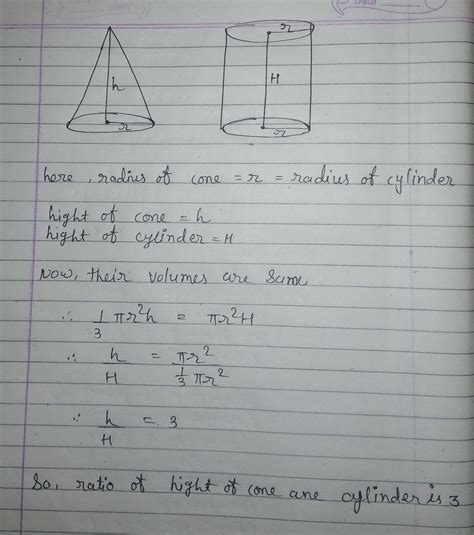 h
r
r
H
r
here, radius of cone = r = radius of cylinder
hight of cone = h
hight of cylinder = H
Now, their volumes are same
∴ 1/3 πr²h = πr²H
∴ h/H = πr² / 1/3 πr²
∴ h/H = 3
So, ratio of hight of cone ane cylinder is 3